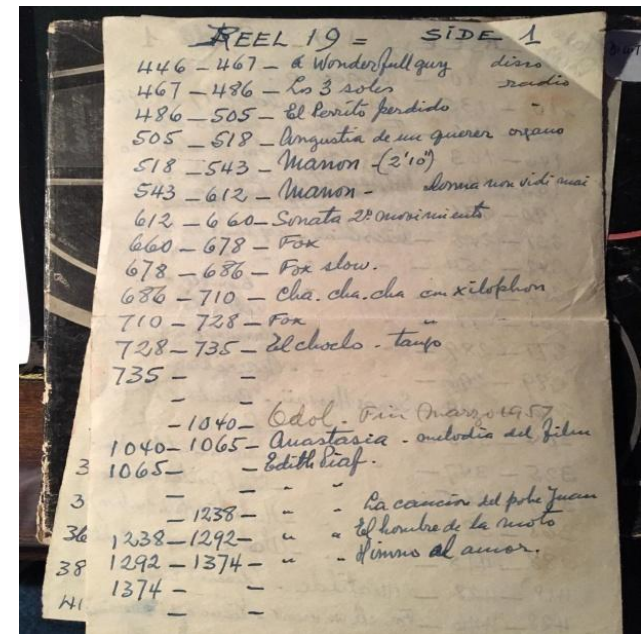 REEL 19 = SIDE 1
446 - 467 - a Wonderfull guy disco
467 - 486 - Los 3 soles radio
486 - 505 - El Perrito perdido "
505 - 518 - Angustia de un querer organo
518 - 543 - Manon - (2'10")
543 - 612 - Manon - Donna non vidi mai
612 - 660 - Sonata 2º movimiento
660 - 678 - Fox
678 - 686 - Fox slow.
686 - 710 - Cha. cha. cha con xilophon
710 - 728 - Fox "
728 - 735 - El choclo - tango
735 - -
- -
- 1040 - Fin Marzo 1957
1040 - 1065 - Anastasia - melodia del film
1065 - - Edith Piaf.
- - " "
- 1238 - " " La cancion del pobre Juan
1238 - 1292 - " " El hombre de la moto
1292 - 1374 - " " Himno al amor.
1374 - -
- -
3
3
36
38
41